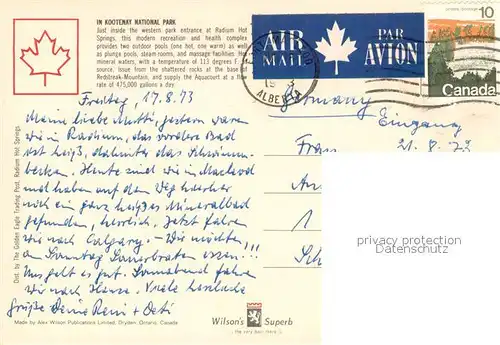 IN KOOTENAY NATIONAL PARK
Just inside the western park entrance at Radium Hot
Springs, this modern recreation and health complex
provides two outdoor pools (one hot, one warm) as well
as plunge pools, steam rooms, and massage facilities. Hot
mineral waters, with a temperature of 113 degrees F. at
source, issue from the shattered rocks at the base of
Redstreak-Mountain, and supply the Aquacourt at a flow
rate of 475,000 gallons a day.
AIR
MAIL
PAR
AVION
ALBERTA
10
Canada
Freitag, 17.8.73
Meine liebe Mutti, gestern waren
wir in Radium, das vordere Bad
ist heiß, dahinter das Schwimm-
becken. Heute sind wir in Macleod
und haben auf dem Weg hierher
noch ein ganz heißes Mineralbad
gefunden, herrlich. Jetzt fahren
wir nach Calgary. - Wir möchten
am Sonntag Sauerbraten essen!!!
Uns geht es gut. Sonnabend fahren
wir nach Hause. Viele herzliche
Grüße Deine Reni +
Germany
Eingang
21.8.73
Frau
An
1
Sch
privacy protection
Datenschutz
Dist. by The Golden Eagle Trading Post, Radium Hot Springs.
Made by Alex Wilson Publications Limited, Dryden, Ontario, Canada
Wilson's Superb
the very best there is